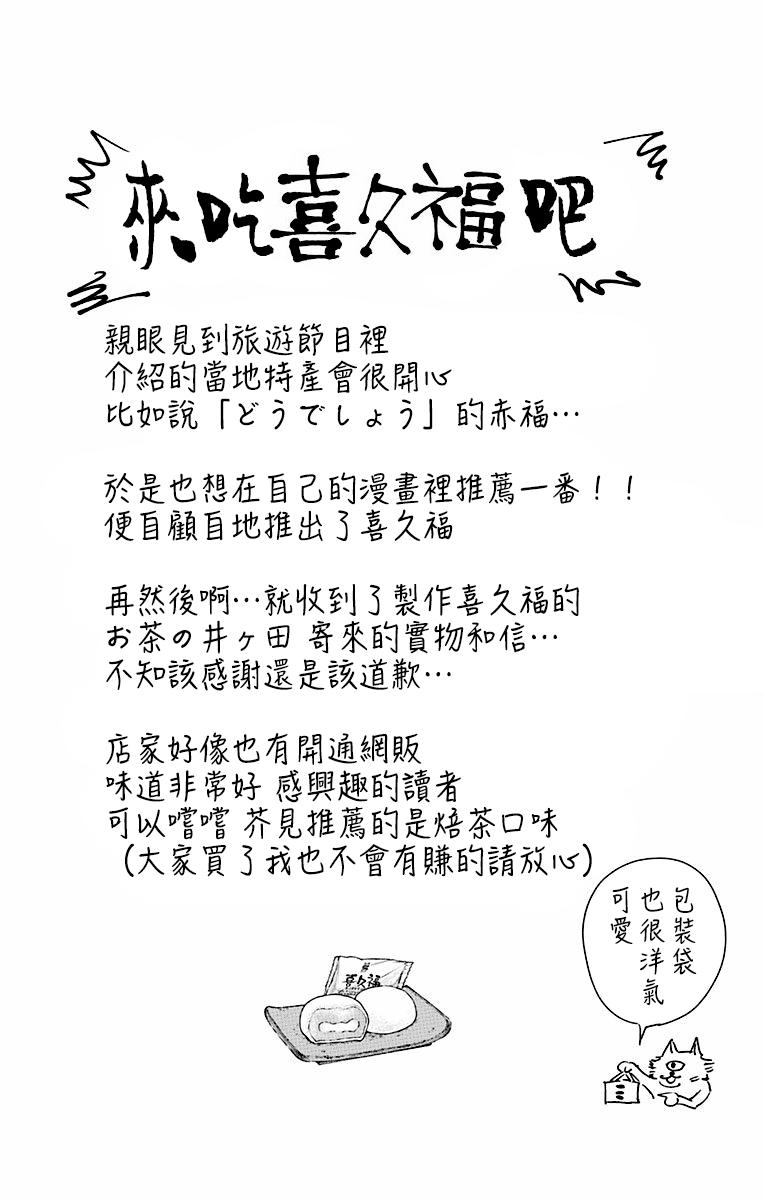 來吃喜久福吧
親眼見到旅遊節目裡
介紹的當地特產會很開心
比如說「どうでしょう」的赤福…
於是也想在自己的漫畫裡推薦一番！！
便自顧自地推出了喜久福
再然後啊…就收到了製作喜久福的
お茶の井ヶ田 寄來的實物和信…
不知該感謝還是該道歉…
店家好像也有開通網販
味道非常好 感興趣的讀者
可以嚐嚐 芥見推薦的是焙茶口味
（大家買了我也不會有賺的請放心）
包裝袋
也很洋氣
可愛
喜久福